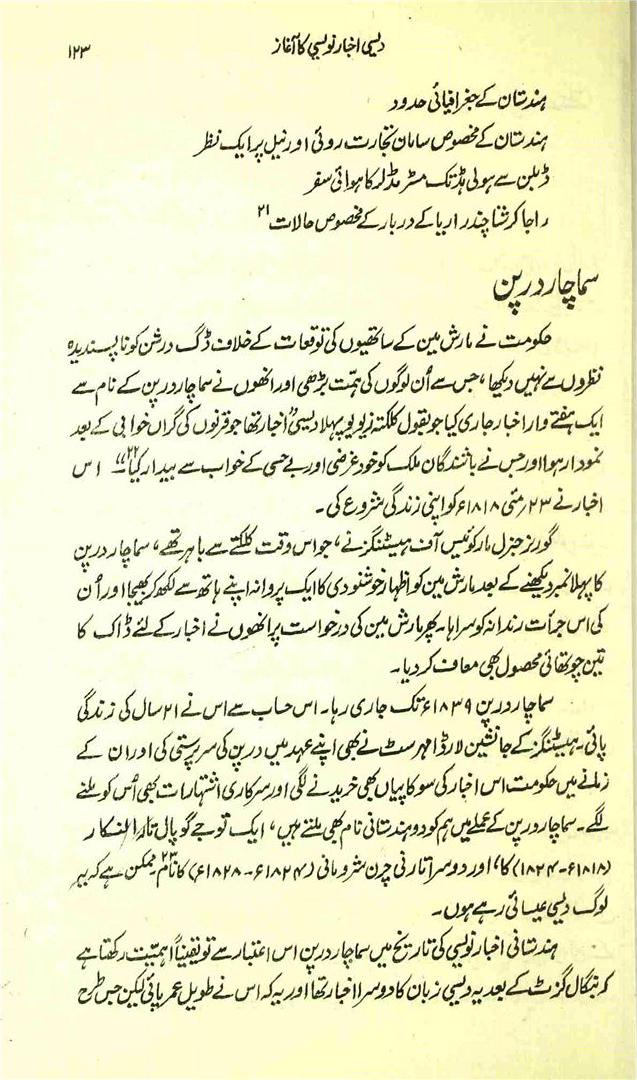 دیسی اخبار نویسی کا آغاز ۱۲۳
ہندستان کے جغرافیائی حدود
ہندستان کے مخصوص سامان تجارت روئی اور نیل پر ایک نظر
ڈبلن سے ہولی ہڈ تک مسٹر مڈلر کا ہوائی سفر
راجا کرشنا چندر اریا کے دربار کے مخصوص حالات ۲۱
سماچار درپن
حکومت نے مارش مین کے ساتھیوں کی توقعات کے خلاف ڈگ درشن کو ناپسندیدہ
نظروں سے نہیں دیکھا، جس سے اُن لوگوں کی ہمّت بڑھی اور انھوں نے سماچار درپن کے نام سے
ایک ہفتے وار اخبار جاری کیا جو بقول کلکتہ ریویو پہلا دیسی "اخبار تھا جو قرنوں کی گراں خوابی کے بعد
نمودار ہوا اور جس نے باشندگان ملک کو خود غرضی اور بے حسی کے خواب سے بیدار کیا"۲۲۔ اس
اخبار نے ۲۳؍ مئی ۱۸۱۸ء کو اپنی زندگی شروع کی۔
گورنر جنرل مارکوئیس آف ہیسٹنگز نے، جو اس وقت کلکتے سے باہر تھے، سماچار درپن
کا پہلا نمبر دیکھنے کے بعد مارش مین کو اظہار خوشنودی کا ایک پروانہ اپنے ہاتھ سے لکھ کر بھیجا اور اُن
کی اس جرأت رندانہ کو سراہا۔ پھر مارش مین کی درخواست پر انھوں نے اخبار کے لئے ڈاک کا
تین چوتھائی محصول بھی معاف کر دیا۔
سماچار درپن ۱۸۳۹ء تک جاری رہا۔ اس حساب سے اس نے ۲۱ سال کی زندگی
پائی۔ ہیسٹنگز کے جانشین لارڈ امہرسٹ نے بھی اپنے عہد میں درپن کی سرپرستی کی اور ان کے
زمانے میں حکومت اس اخبار کی سو کاپیاں بھی خریدنے لگی اور سرکاری اشتہارات بھی اُس کو ملنے
لگے۔ سماچار درپن کے عملے میں ہم کو دو ہندستانی نام بھی ملتے ہیں، ایک تو جے گوپال تارالنکار
(۱۸۱۸ء-۱۸۲۴) کا، اور دوسرا تارنی چرن شرومانی (۱۸۲۴ء-۱۸۲۸ء) کا نام۲۳۔ ممکن ہے کہ یہ
لوگ دیسی عیسائی رہے ہوں۔
ہندستانی اخبار نویسی کی تاریخ میں سماچار درپن اس اعتبار سے تو یقیناً اہمیّت رکھتا ہے
کہ بنگال گزٹ کے بعد یہ دیسی زبان کا دوسرا اخبار تھا اور یہ کہ اس نے طویل عمر پائی لیکن جس طرح